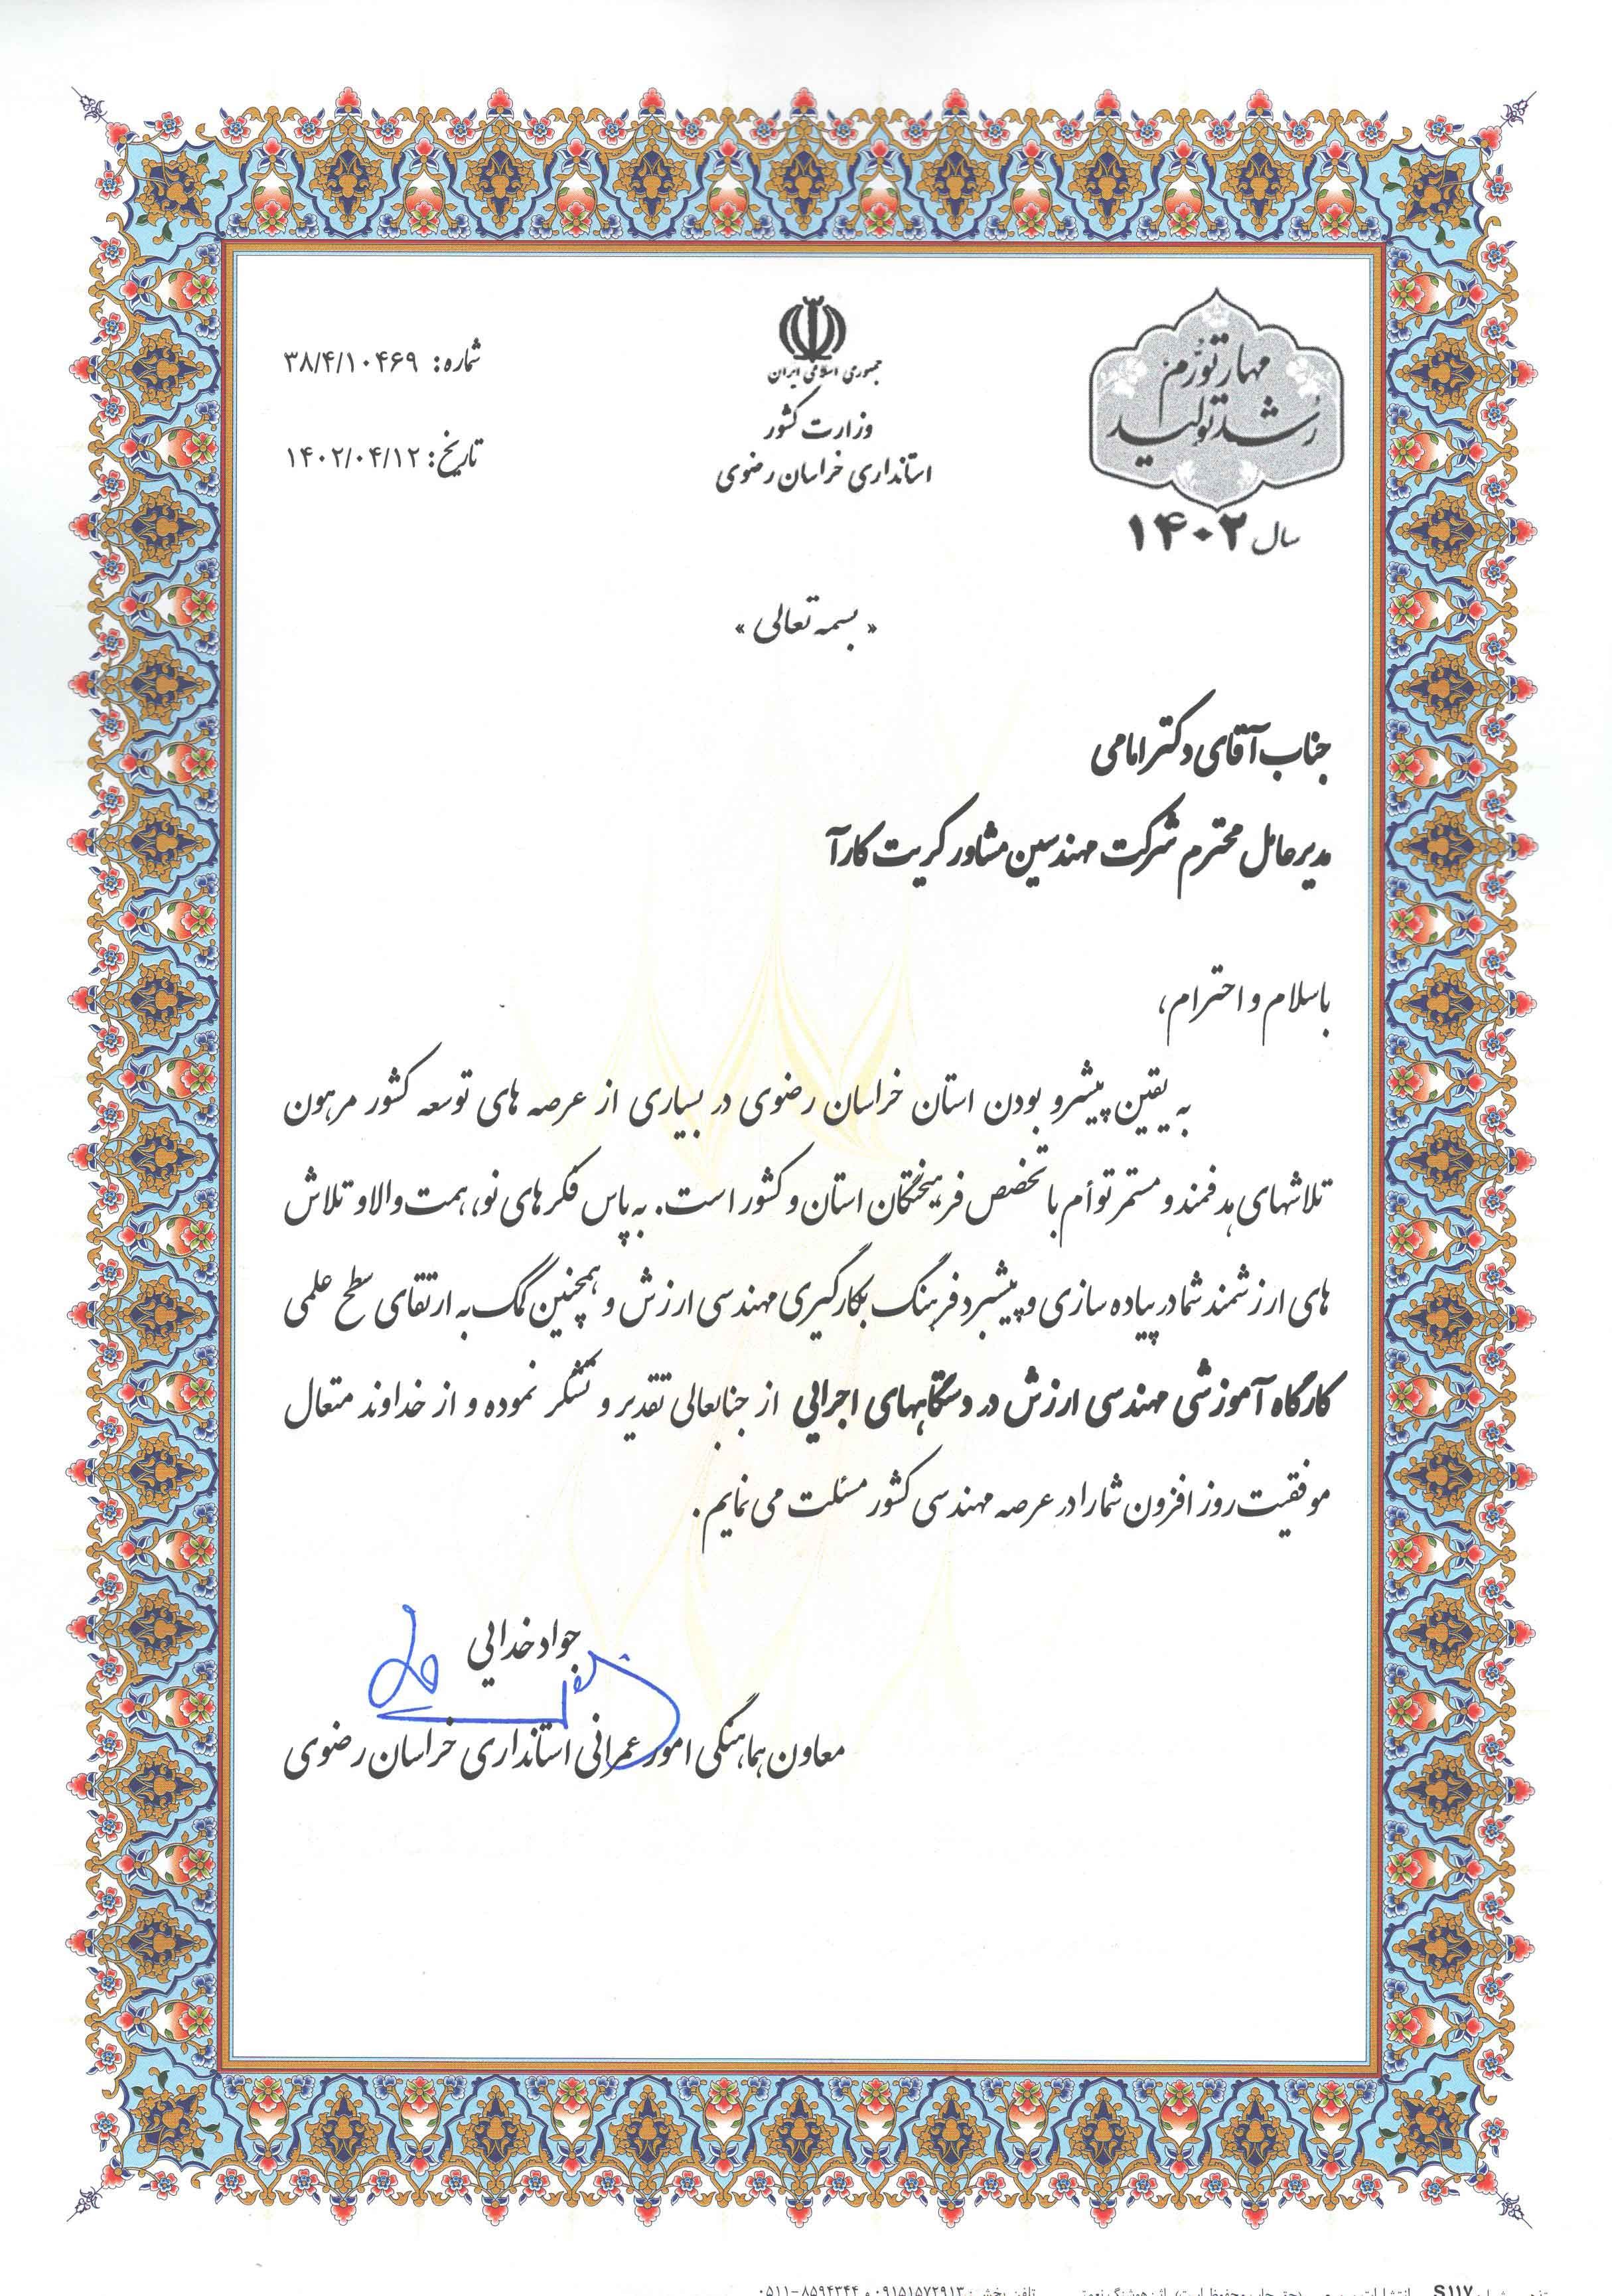 مهار تورم
رشد تولید
سال ۱۴۰۲
جمهوری اسلامی ایران
وزارت کشور
استانداری خراسان رضوی
شماره: ۳۸/۴/۱۰۴۶۹
تاریخ: ۱۴۰۲/۰۴/۱۲
« بسمه تعالی »
جناب آقای دکتر امامی
مدیرعامل محترم شرکت مهندسین مشاور کریت کارآ
با سلام و احترام،
به یقین پیشرو بودن استان خراسان رضوی در بسیاری از عرصه های توسعه کشور مرهون
تلاشهای هدفمند و مستمر توأم با تخصص فرهیختگان استان و کشور است. به پاس فکرهای نو، همت والا و تلاش
های ارزشمند شما در پیاده سازی و پیشبرد فرهنگ بکارگیری مهندسی ارزش و همچنین کمک به ارتقای سطح علمی
کارگاه آموزشی مهندسی ارزش در دستگاههای اجرایی از جنابعالی تقدیر و تشکر نموده و از خداوند متعال
موفقیت روز افزون شما را در عرصه مهندسی کشور مسئلت می نمایم.
جواد خدایی
معاون هماهنگی امور عمرانی استانداری خراسان رضوی
S۱۱۷
۰۹۱۵۱۵۷۲۹۱۳ و ۰۵۱۱-۸۵۹۴۳۴۴